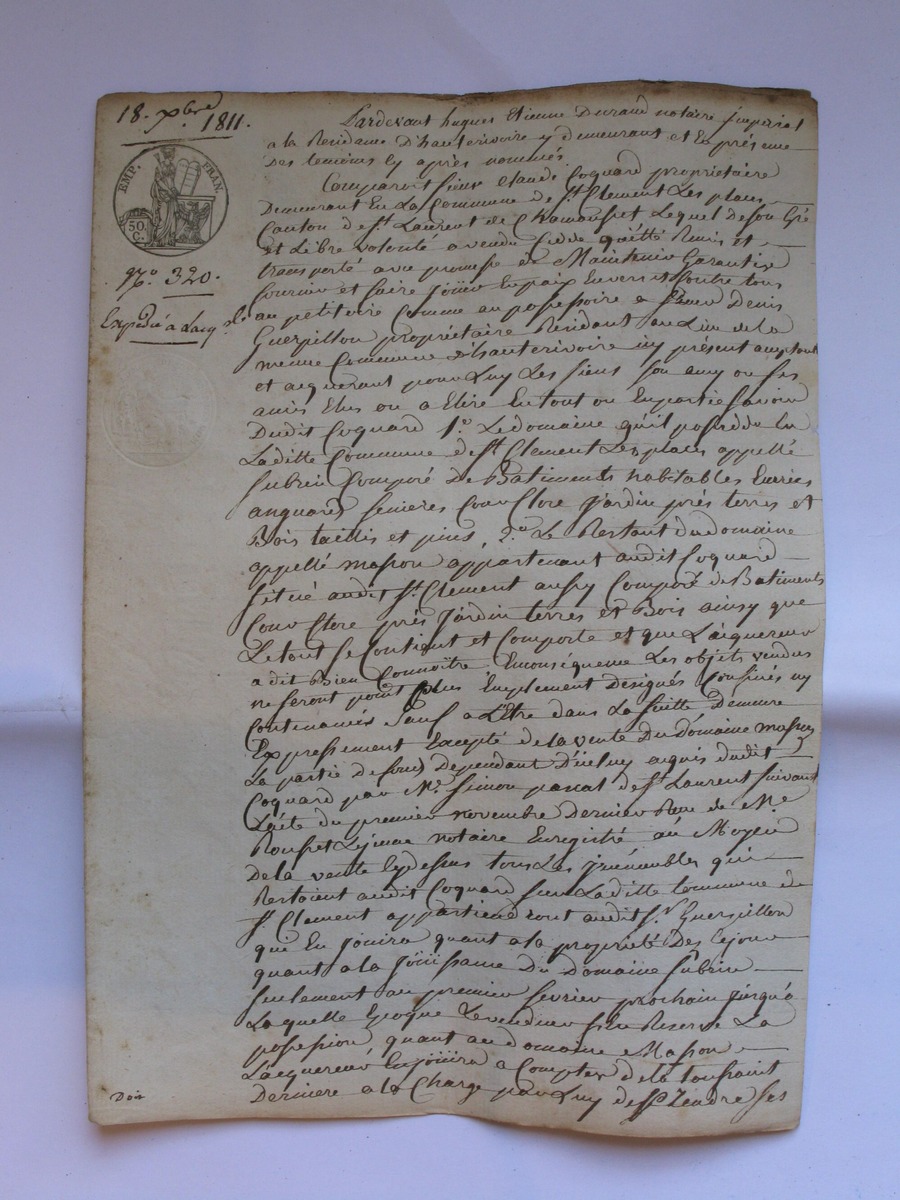 18. Xbre 1811.
EMP. FRAN.
50. C.
No. 320.
Expedié a Lacq.
Pardevant hugues Etienne Durand notaire Imperial
a la Residance D'hauterivoire y demeurant et En présence
Des temoins Cy après nommés.
Comparoit Sieur Claude Coquard propriétaire
Demeurant En La Commune de St. Clement Les places
Canton de St. Laurent de Chamousset Lequel de son Gré
et Libre volonté a vendu Cedde quitté Remis et
transporté avec promesse de Maintenir Garantir
fournir et faire Joüir En paix Envers et Contre tous
au pétitoire Comme au possessoire a Sieur Denis
Guerpillon propriétaire Residant au Lieu de la
meme Commune d'hauterivoire icy présent acceptant
et aiquerant pour Luy Les siens son amy ou ses
amis Elus ou a Elire En tout ou En partie Savoir
Dudit Coquard 1o. Le domaine qu'il possedde En
Laditte Commune de St. Clement Les places appellé
Subrin Composé De Batiments habitables Ecuries
Cour Close Jardin prés terres et
Bois taillis et pins, 2o. Le Restant du domaine
appellé masson appartenant audit Coquard
Situé audit St. Clement aussy Composé de Batiments
Cour Close prés Jardin terres et Bois ainsy que
Le tout Se Contient et Comporte et que L'aiquereur
a dit Bien Connoître En conséquence Les objets vendus
ne seront point plus Emplement désignés Confinés ny
Contenancés Sauf a L'Etre dans La suitte Demeure
Expressement Excepté de la vente Du Domaine masson
La partie de fond Dependant D'icluy aquis dudit
Coquard par Mr. Simon pascal de St. Laurent suivant
L'acte du premier novembre Dernier Reçu de Me
Rousset Lejeune notaire Enregistré au Moyen
De la vente Cy dessus tous Les immeubles qui
Restoient audit Coquard sur Laditte Commune de
St. Clement appartiendront audit Sr. Guerpillon
qui En Joüira quant a la propriété Des Ce jour
quant a la Joüissance Du Domaine Subrin
seulement au premier fevrier prochain jusqu'a
Laquelle Epoque Le vendeur s'En Reserve La
possession quant au domaine Masson
L'acquereur En joüira a Compter de la toussaint
Derniere a la Charge par Luy de Prendre ses
Dix